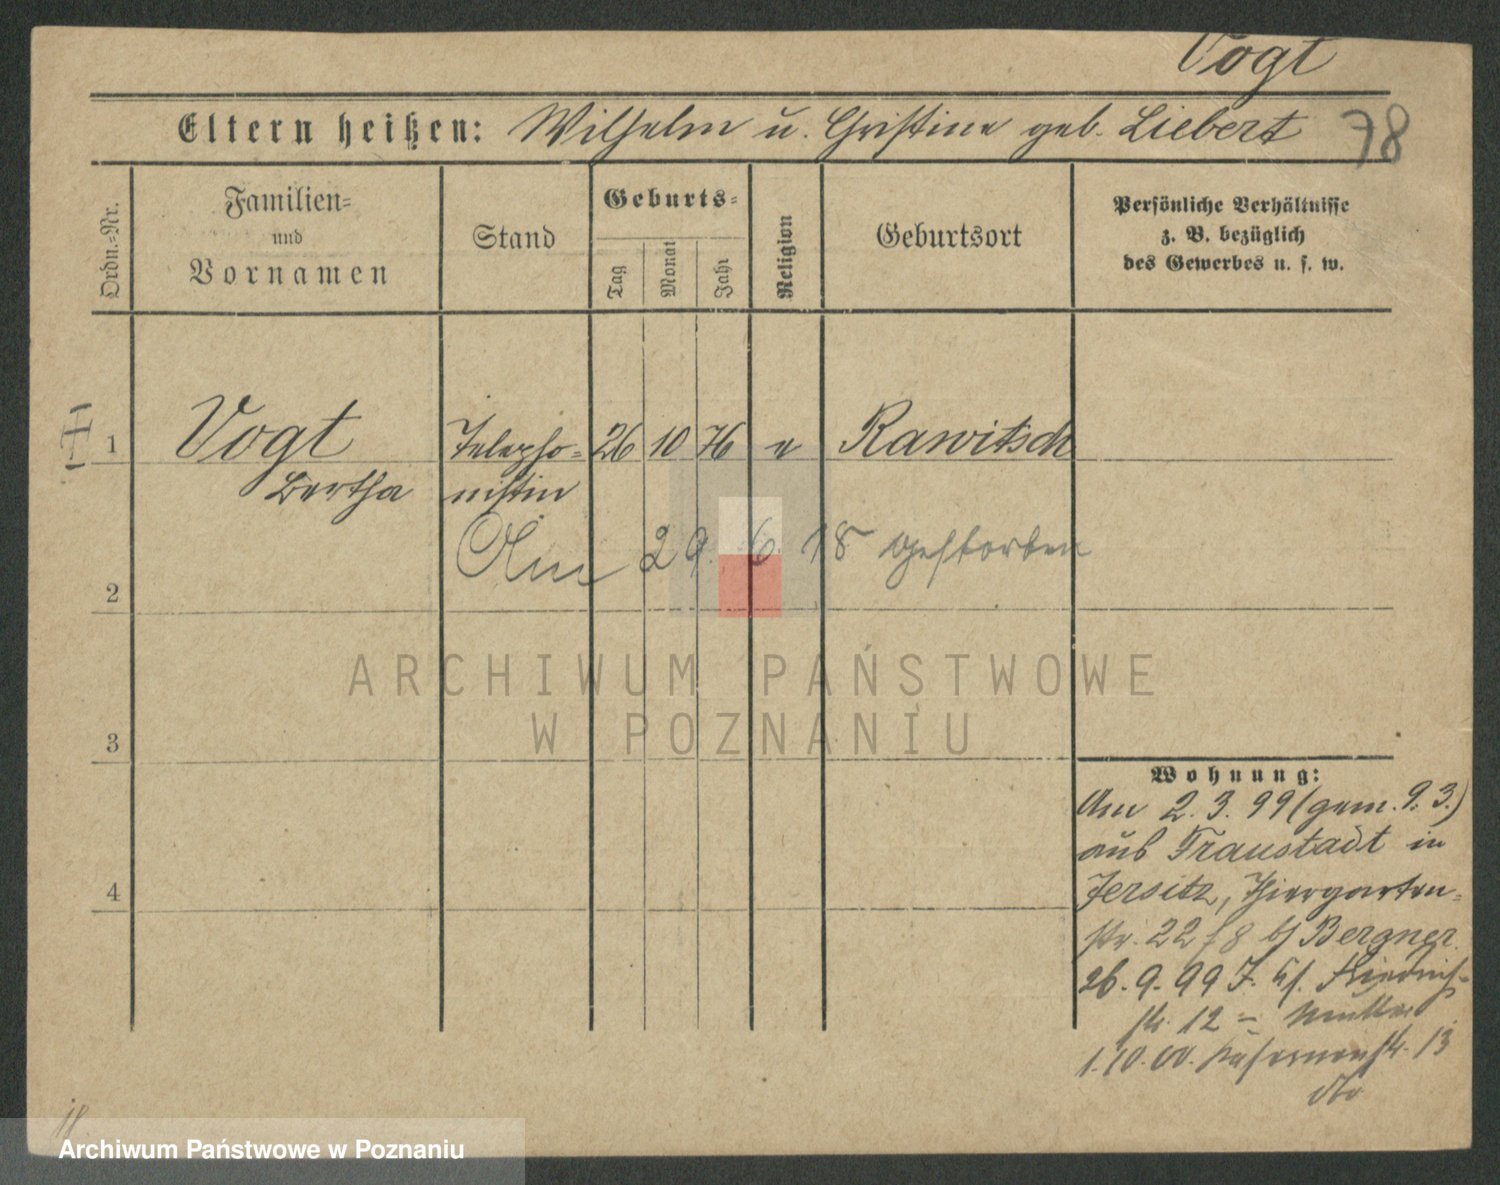 Vogt
Eltern heißen: Wilhelm u. Christine geb. Liebert
78
Ordn.-Nr.
Familien-
und
Vornamen
Stand
Geburts-
Tag
Monat
Jahr
Religion
Geburtsort
Persönliche Verhältnisse
z. B. bezüglich
des Gewerbes u. s. w.
1 Vogt Telepho- 26 10 76 e Rawitsch
Bertha nistin
Am 29. 6. 18 gestorben
2
ARCHIWUM PAŃSTWOWE
W POZNANIU
3
Wohnung:
Am 2. 3. 99 (gem. 9. 3.)
aus Fraustadt in
4
Jersitz, Thiergarten-
str. 22 b/ Bergner
26. 9. 99 J.
str. 12 =
1. 10. 00. Kasernenstr. 13
dto
Archiwum Państwowe w Poznaniu